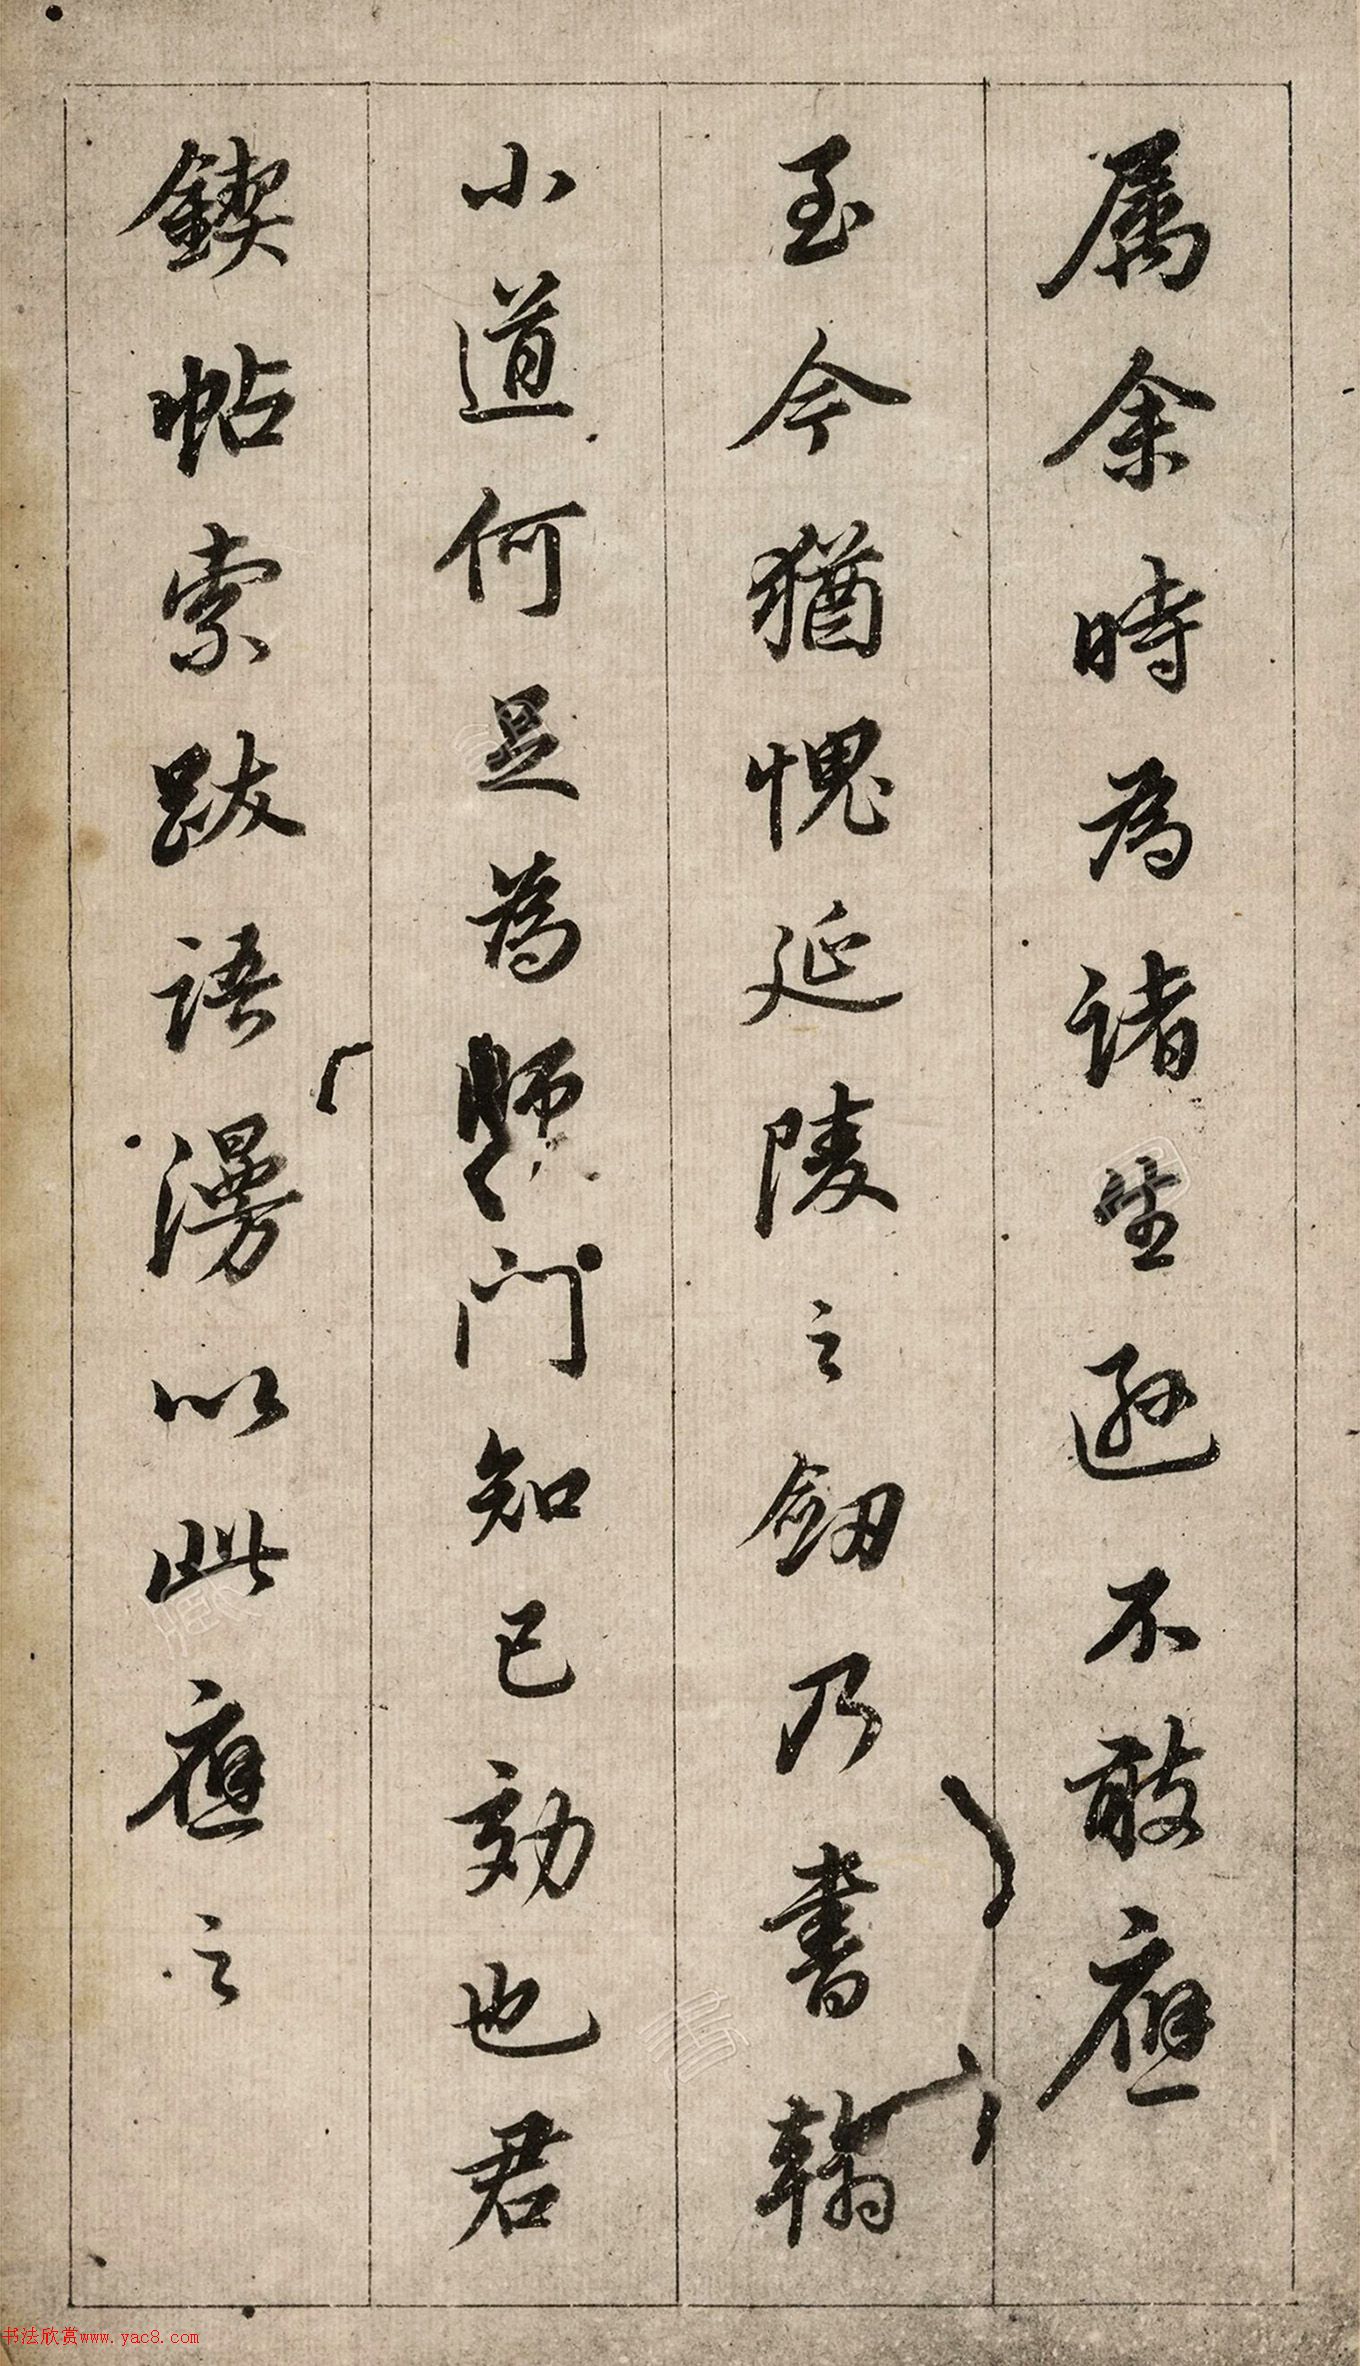 属余時為诸生逊不敢應
至今猶愧延陵之劒乃書翰
小道何足為师门知己効也君
鍥帖索跋语漫以此應之
书法欣赏www.yac8.com